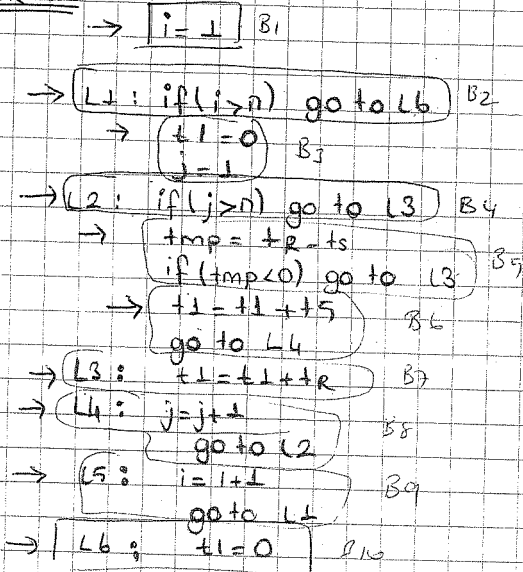 → i = 1 B1
→ L1: if(i>n) go to L6 B2
→ t1 = 0 B3
j = 1
→ L2: if(j>n) go to L3 B4
→ tmp = tR - ts B5
if (tmp<0) go to L3
→ t1 = t1 + t5 B6
go to L4
→ L3: t1 = t1 + tR B7
→ L4: j = j+1 B8
go to L2
→ L5: i = i+1 B9
go to L1
→ L6: t1 = 0 B10